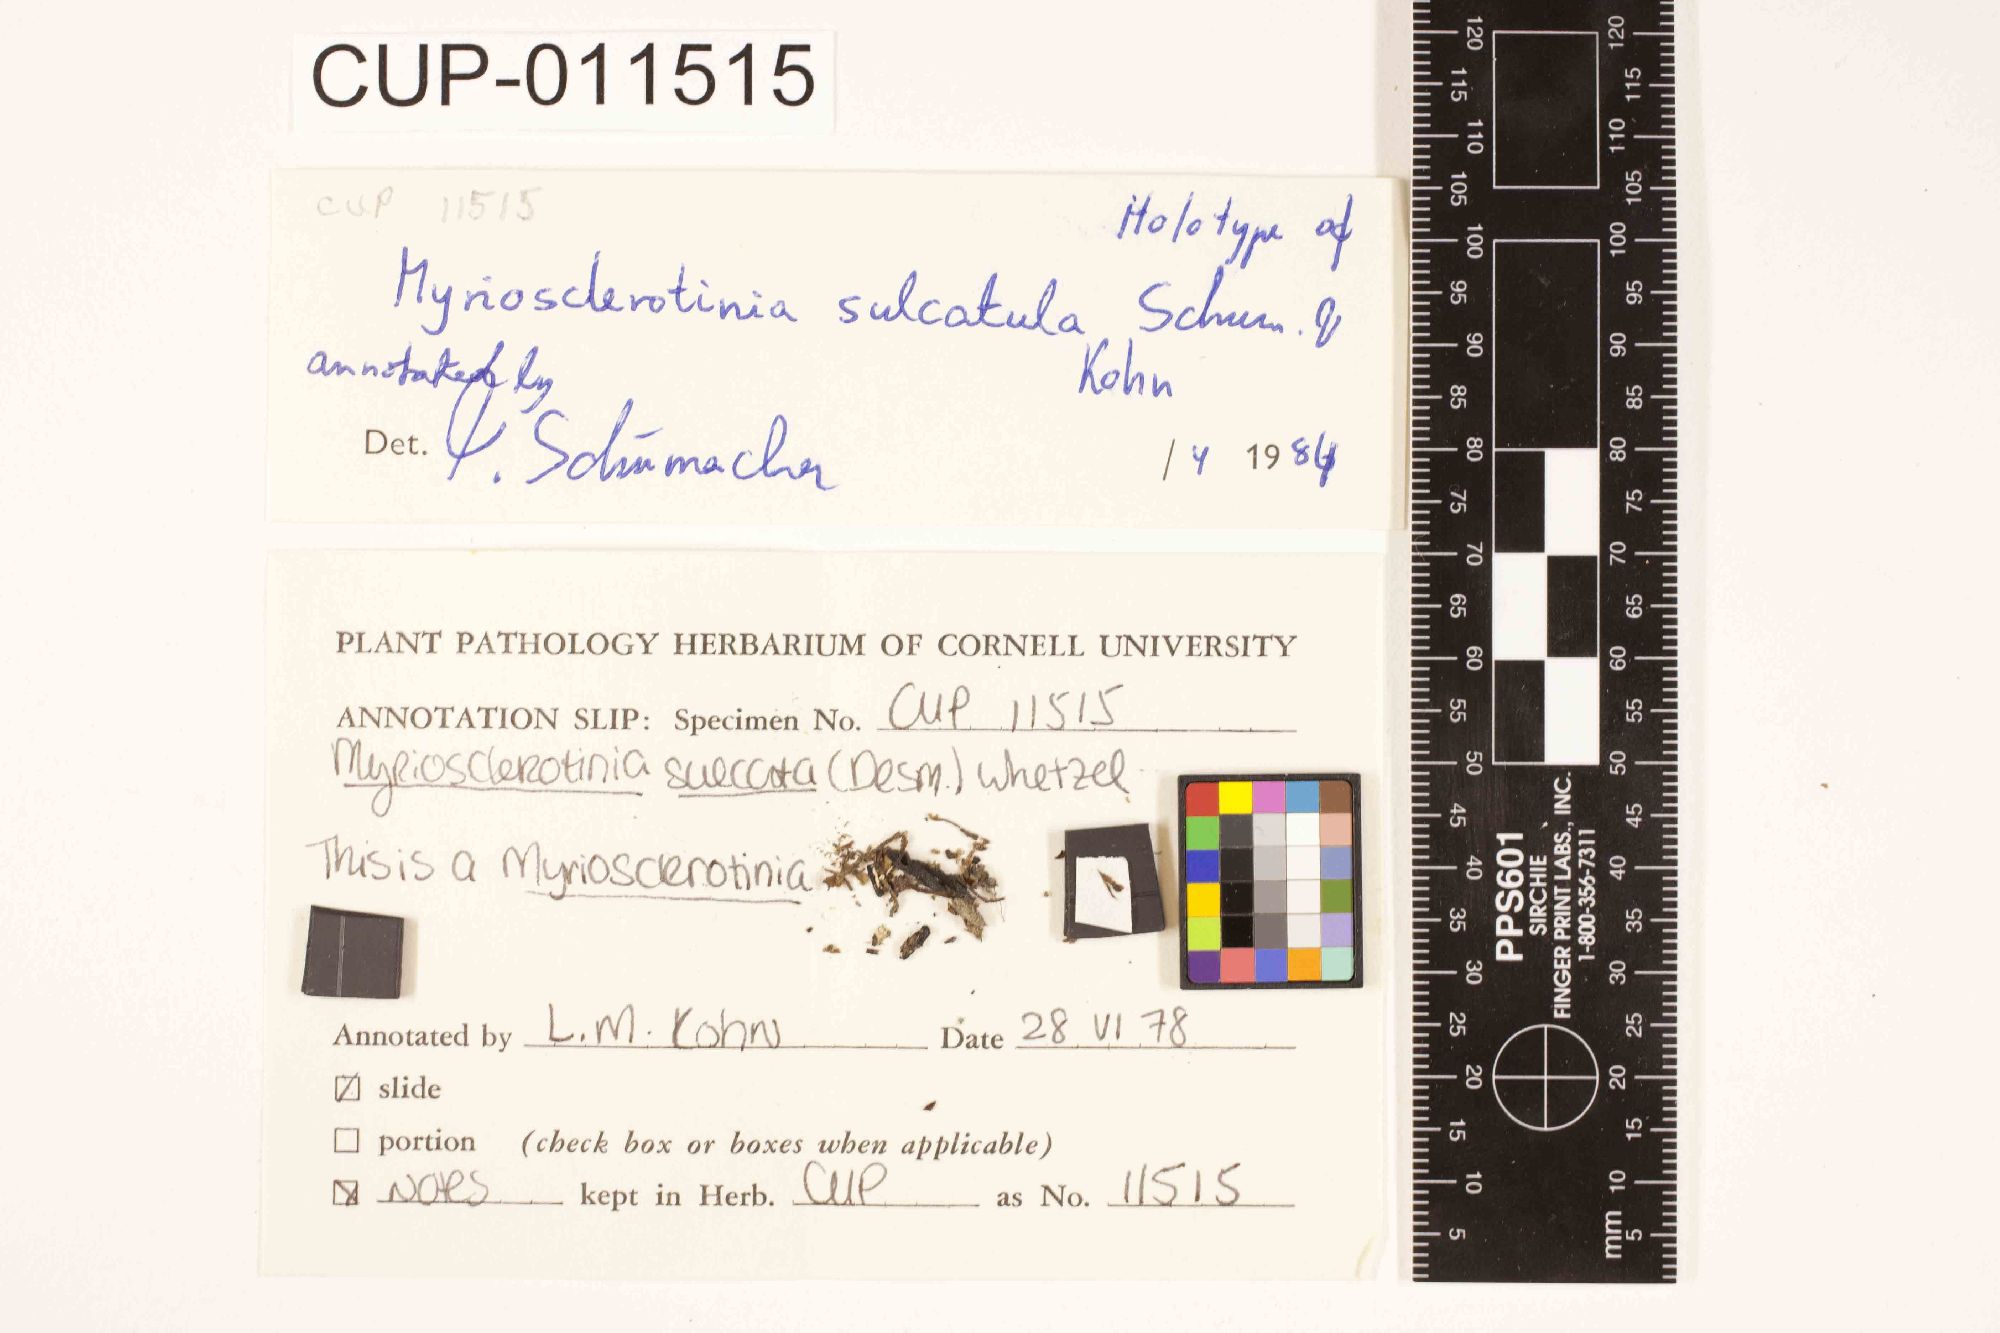 CUP-011515
CUP 11515
Holotype of
Myriosclerotinia sulcatula Schum. &
Kohn
annotated by
Det. T. Schumacher / 4 1984
PLANT PATHOLOGY HERBARIUM OF CORNELL UNIVERSITY
ANNOTATION SLIP: Specimen No. CUP 11515
Myriosclerotinia sulcata (Desm.) Whetzel
This is a Myriosclerotinia
Annotated by L.M. Kohn Date 28 VI 78
slide
portion (check box or boxes when applicable)
Notes kept in Herb. CUP as No. 11515
120 115 110 105 100 95 90 85 80 75 70 65 60 55 50 45 40 35 30 25 20 15 10 5
120 115 110 105 100 95 90 85 80 75 70 65 60 55 50 45 40 35 30 25 20 15 10 5 mm
PPS601
SIRCHIE
FINGER PRINT LABS., INC.
1-800-356-7311